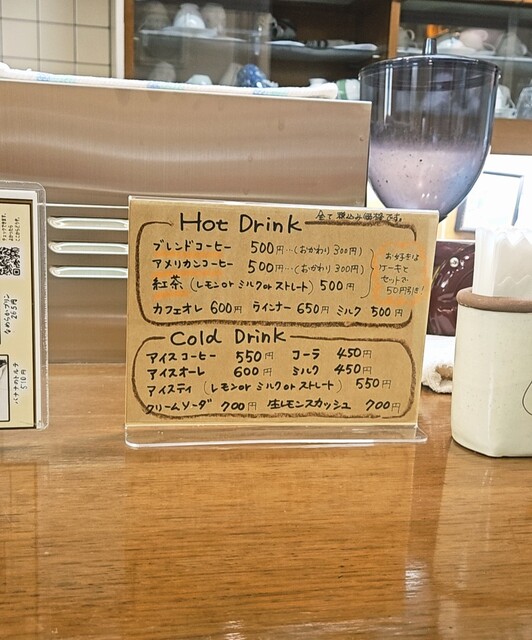 Hot Drink
全て税込み価格です。
ブレンドコーヒー 500円…(おかわり300円)
アメリカンコーヒー 500円…(おかわり300円)
紅茶 (レモン or ミルク or ストレート) 500円
お好きな
ケーキと
セットで
50円引き!
カフェオレ 600円 ウィンナー 650円 ミルク 500円
Cold Drink
アイスコーヒー 550円 コーラ 450円
アイスオーレ 600円 ミルク 450円
アイスティ (レモン or ミルク or ストレート) 550円
クリームソーダ 700円 生レモンスカッシュ 700円
なめらかプリン
265円
バナナのタルト
518円